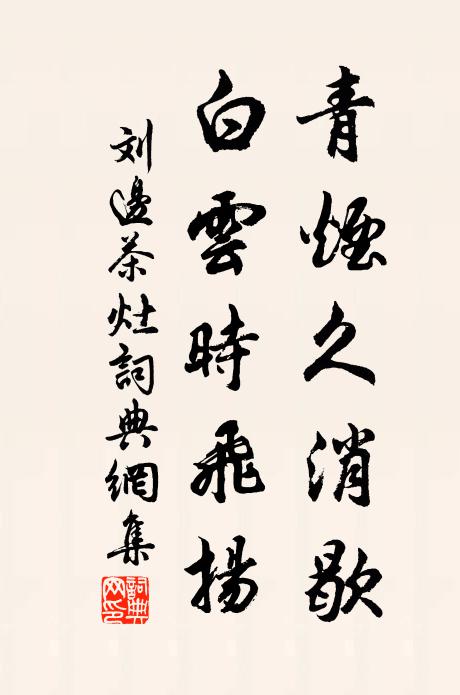 青煙久消歇
白雲時飛揚
刘邊茶灶詞典網集
詞典網印